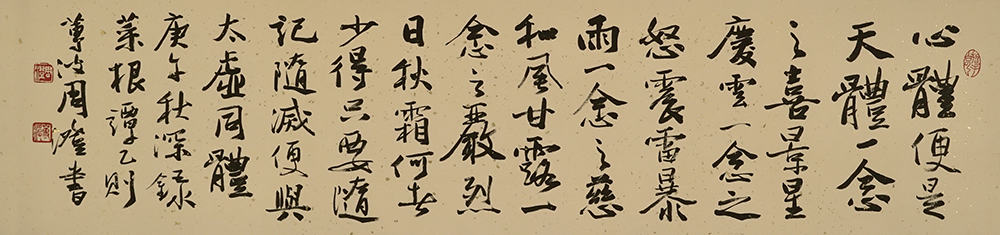 心體便是
天體一念
之喜景星
慶雲一念之
怒震雷暴
雨一念之慈
和風甘露一
念之嚴烈
日秋霜何者
少得只要隨
起隨滅便與
太虛同體
庚子秋深錄
菜根譚乙則
蓴波周澄書